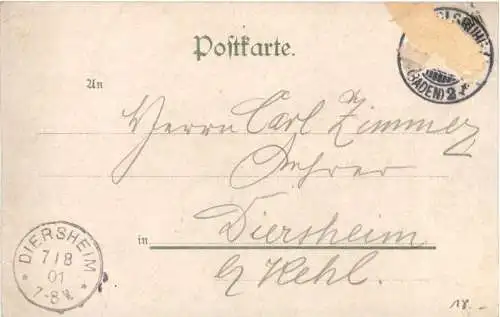 Postkarte.
An
Herrn Carl Zimmer
in Diersheim
b/ Kehl.
(BADEN) 2 *
* DIERSHEIM *
7/8
01
7-8 V.
18.-